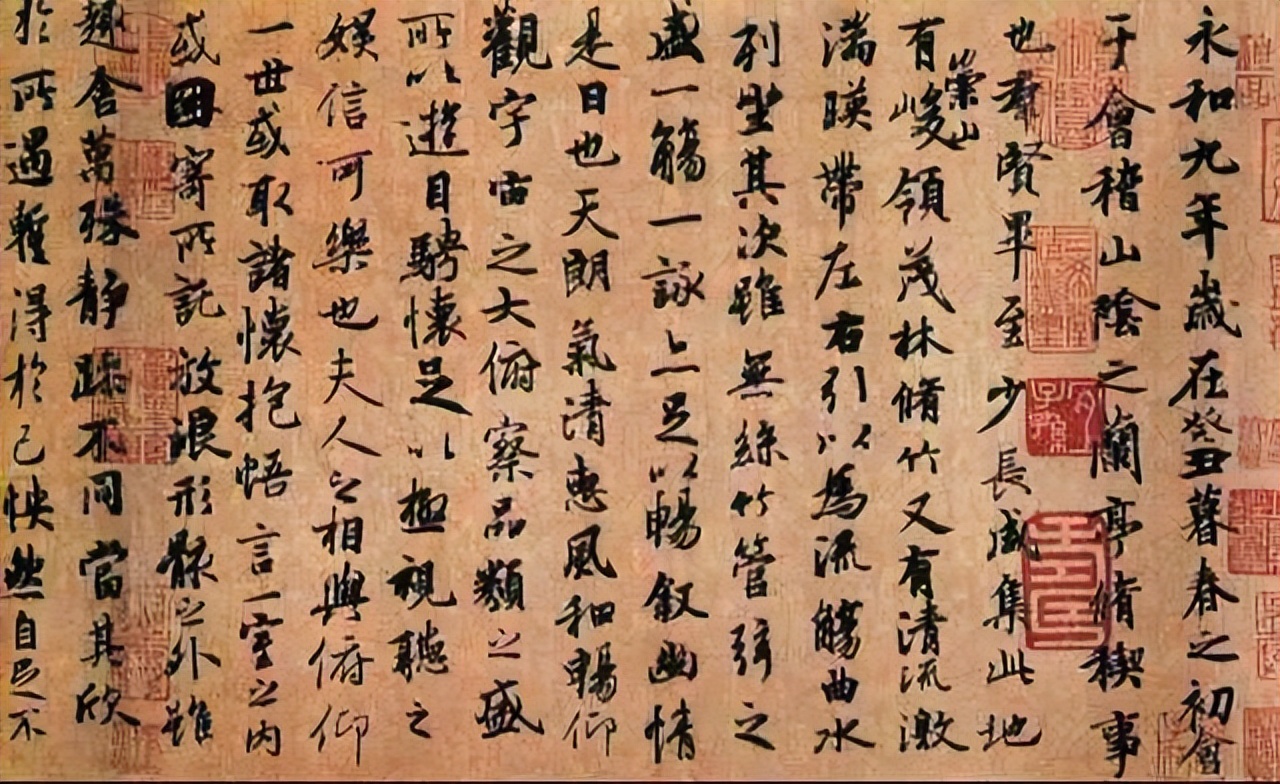 永和九年歲在癸丑暮春之初會
于會稽山陰之蘭亭脩稧事
也羣賢畢至少長咸集此地
有崇山峻領茂林脩竹又有清流激
湍暎帶左右引以為流觴曲水
列坐其次雖無絲竹管弦之
盛一觴一詠亦足以暢叙幽情
是日也天朗氣清惠風和暢仰
觀宇宙之大俯察品類之盛
所以遊目騁懷足以極視聽之
娛信可樂也夫人之相與俯仰
一世或取諸懷抱悟言一室之内
或因寄所託放浪形骸之外雖
趣舍萬殊靜躁不同當其欣
於所遇暫得於己怏然自足不